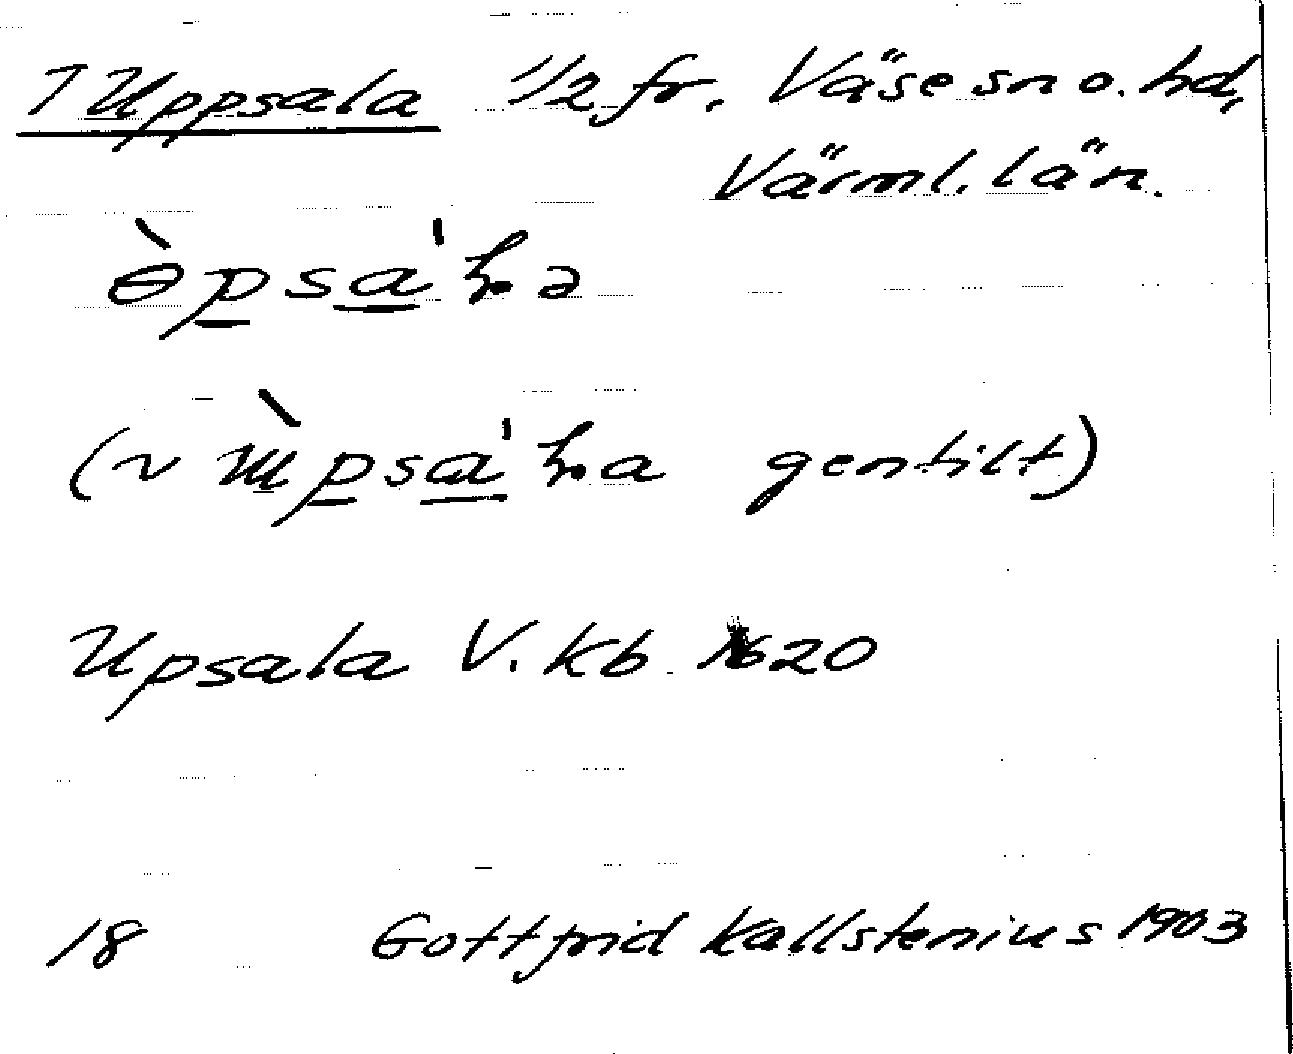 1 Uppsala 1/2 fr. Väse sn o. hd,
Värml. län.
(~ gentilt)
Upsala V. Kb. 1620
18 Gottfrid Kallstenius 1903